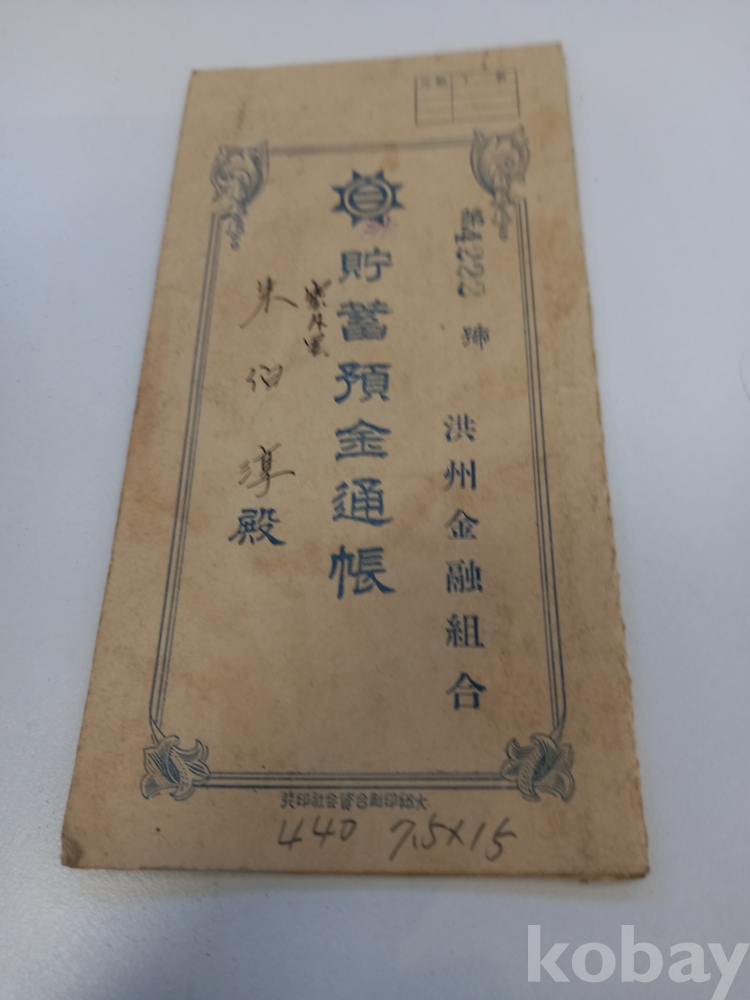 第4222號
洪州金融組合
貯蓄預金通帳
朱伯淳殿
大鄕印刷合資会社印行
440 7.5×15
kobay